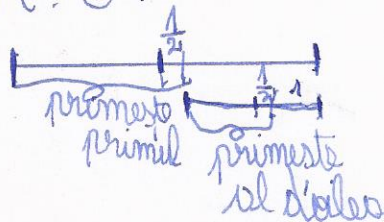 1/2
1/2 1
primește
primul primește
al doilea